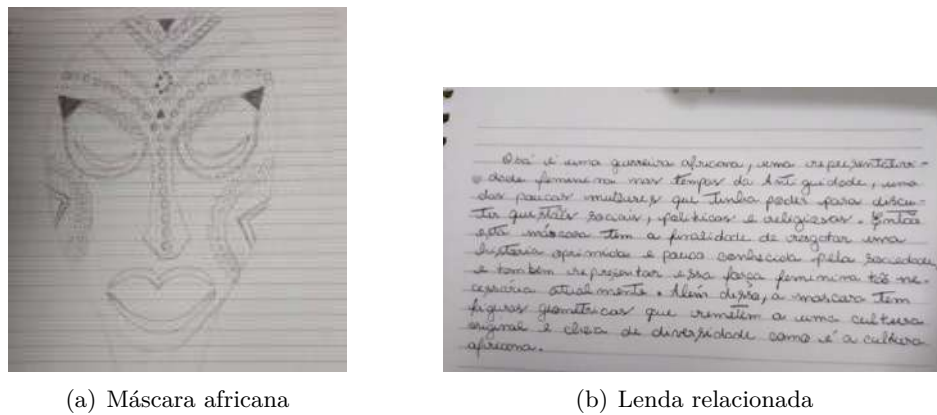 Obá é uma guerreira africana, uma representativi-
dade feminina nos tempos da Antiguidade, uma
das poucas mulheres que tinha poder para discu-
tir questões sociais, políticas e religiosas. Então
esta máscara tem a finalidade de resgatar uma
história oprimida e pouco conhecida pela sociedade
e também representar essa força feminina tão ne-
cessária atualmente. Além disso, a mascara tem
figuras geométricas que remetem a uma cultura
original e cheia de diversidade como é a cultura
africana.
(a) Máscara africana
(b) Lenda relacionada